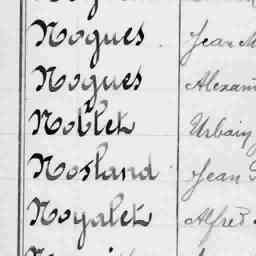 Nogues Jean M
Nogues Alexan
Noblet Urbain
Nosland Jean
Noyalet Alfred